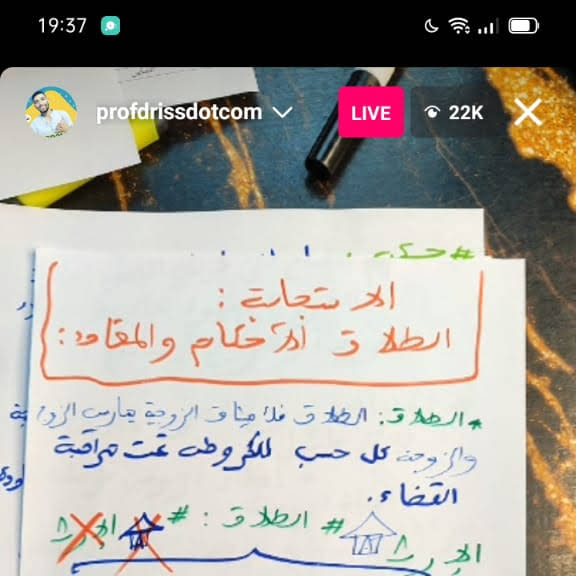 19:37
profdrissdotcom LIVE 22K
الاستجابة :
الطلاق الأحكام والمقاصد:
* الطلاق: الطلاق فك ميثاق الزوجية يمارس الزوج
والزوجة كل حسب للشروطه تحت مراقبة
القضاء.
الإرث # الطلاق : # الإرث